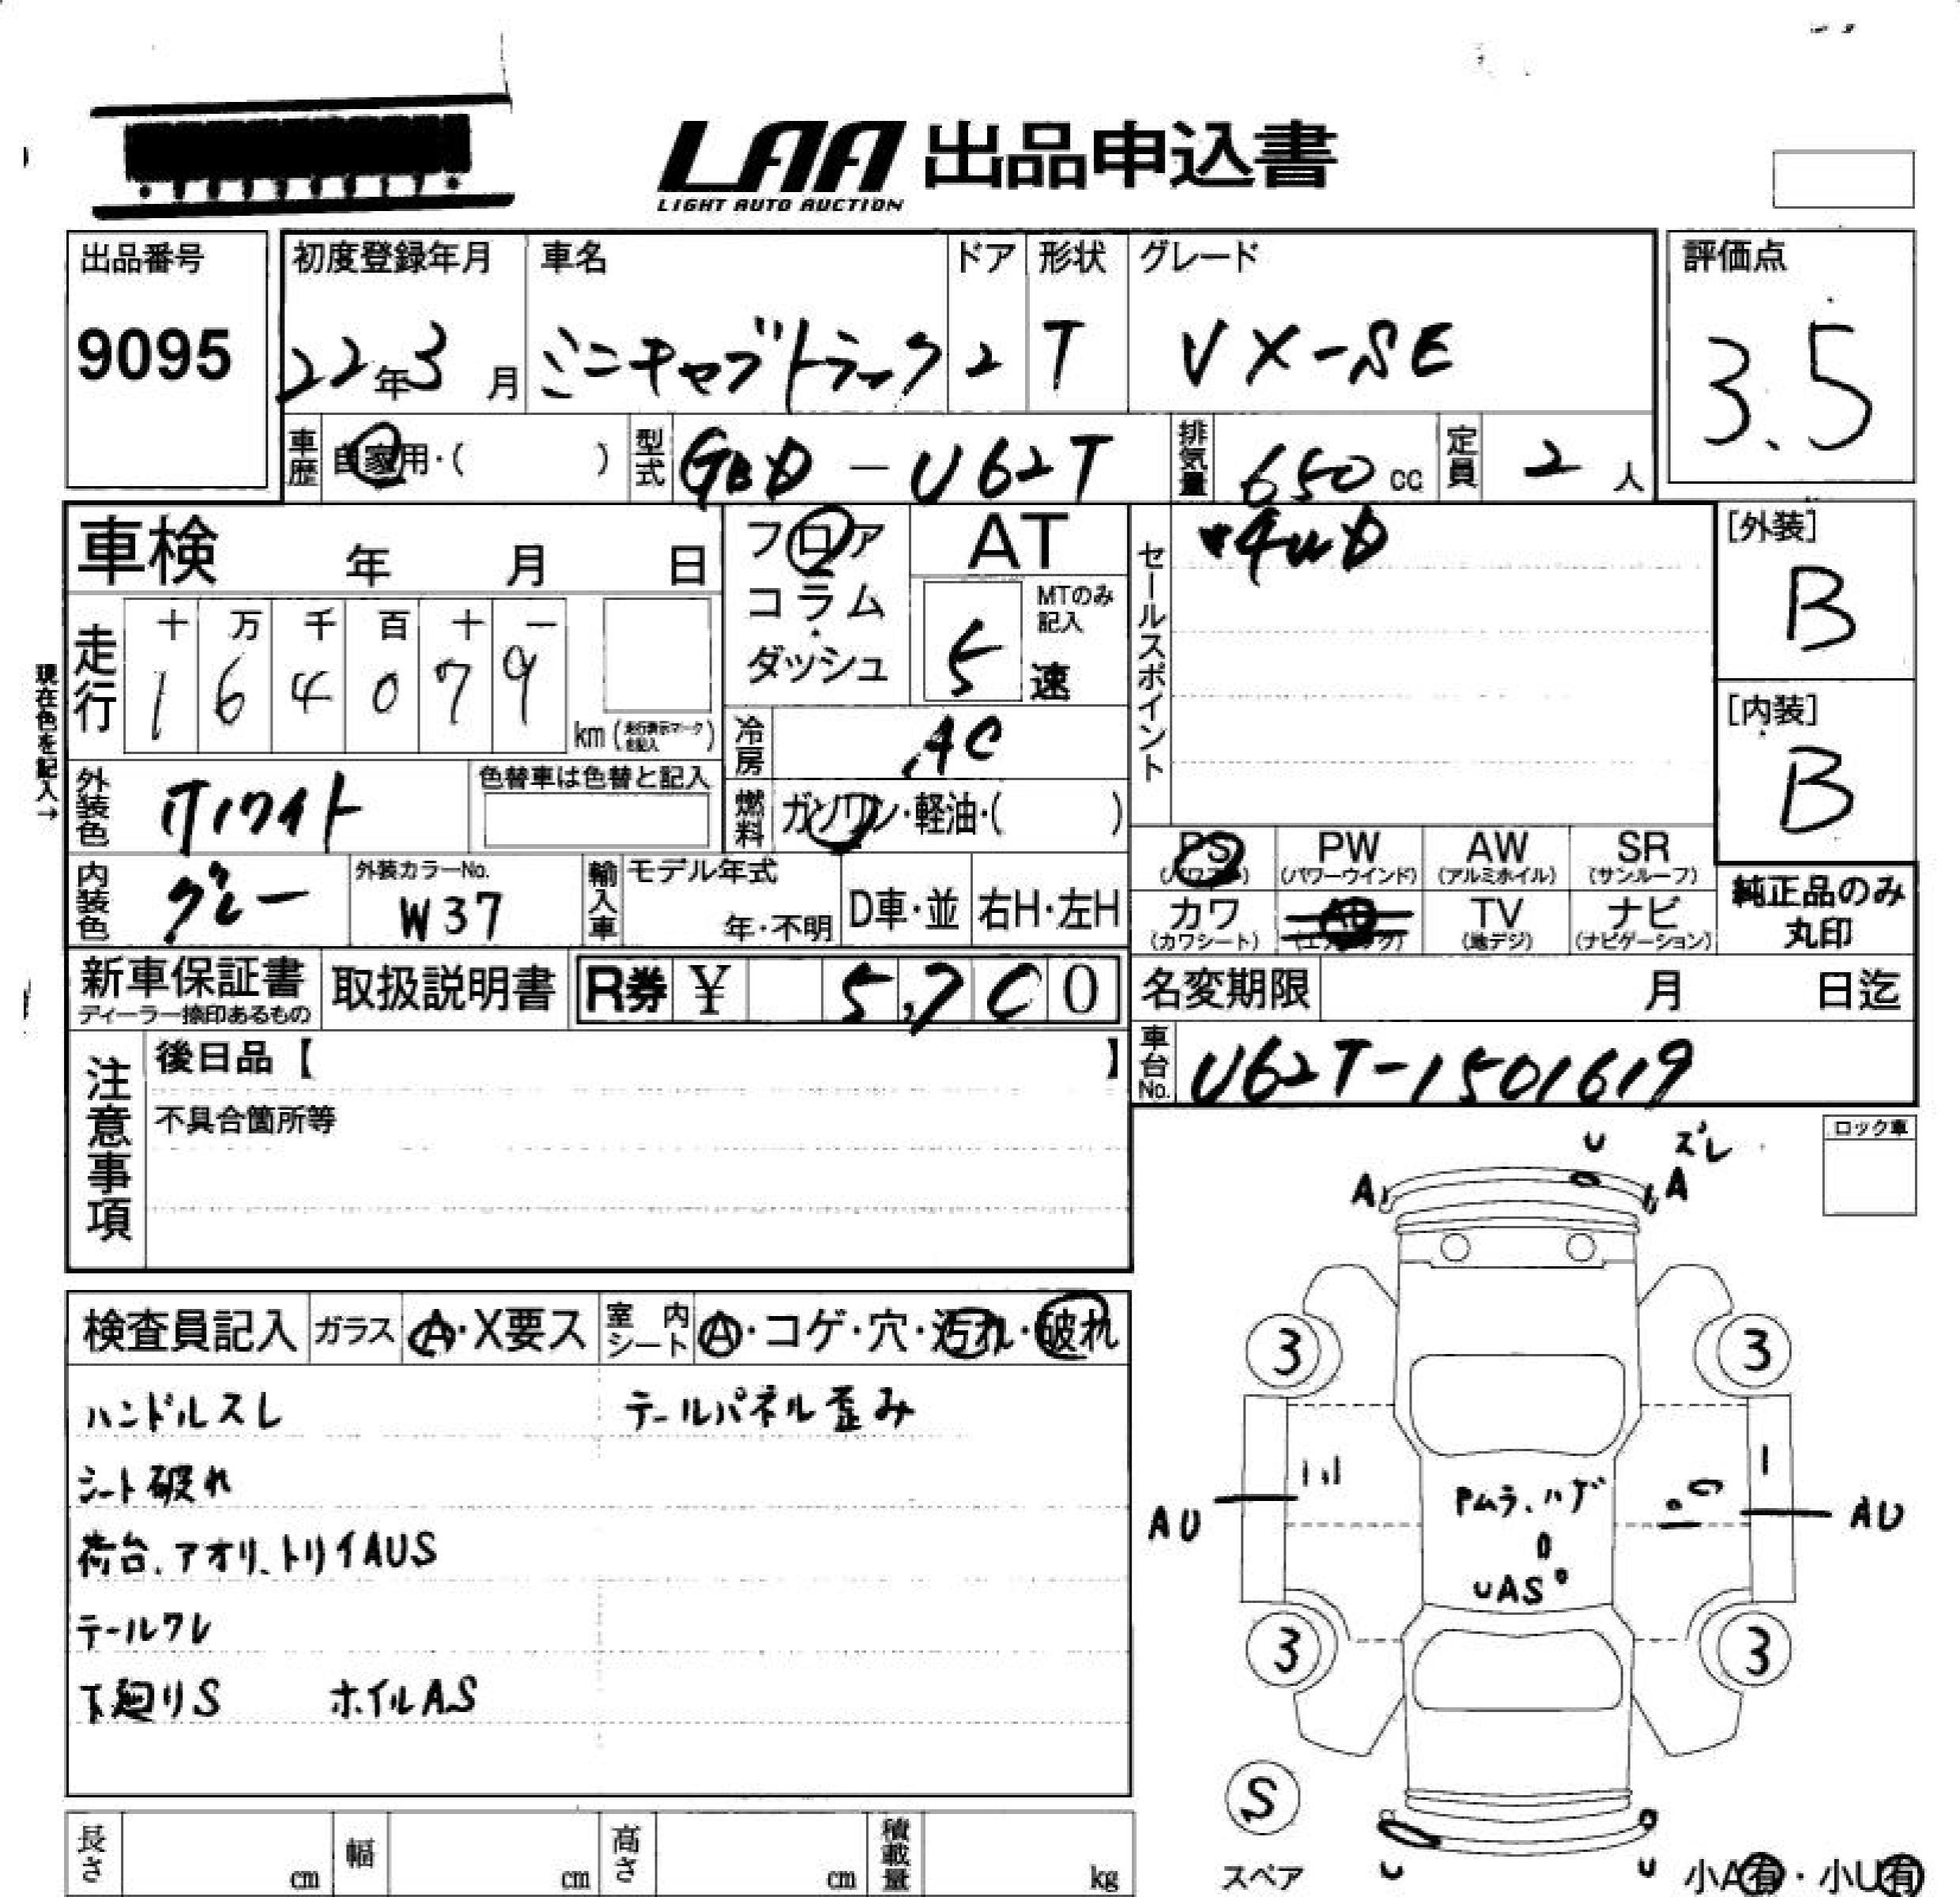 LAA 出品申込書
LIGHT AUTO AUCTION
出品番号
9095
初度登録年月
22年3月
車名
ミニキャブトラック
ドア
2
形状
T
グレード
VX-SE
評価点
3.5
車歴 自家用・( )
型式 GBD-U62T
排気量 650cc
定員 2人
車検 年 月 日
フロア
コラム
・
ダッシュ
AT
MTのみ
記入
5速
セールスポイント
4WD
[外装]
B
[内装]
B
現在色を記入→
走行
十 万 千 百 十 一
1 6 4 0 7 9
km (走行表示マークを記入)
冷房 AC
外装色 ホワイト
色替車は色替と記入
燃料 ガソリン・軽油・( )
PS
(パワステ)
PW
(パワーウインド)
AW
(アルミホイル)
SR
(サンルーフ)
内装色 グレー
外装カラーNo.
W37
輸入車 モデル年式
年・不明
D車・並
右H・左H
カワ
(カワシート)
TV
(地デジ)
ナビ
(ナビゲーション)
純正品のみ
丸印
新車保証書
ディーラー捺印あるもの
取扱説明書
R券 ¥ 5,700
名変期限 月 日迄
注意事項
後日品【 】
不具合箇所等
車台No. U62T-1501619
ロック車
検査員記入
ガラス
A・X要ス
室内
シート
A・コゲ・穴・汚れ・破れ
ハンドルスレ
テールパネル歪み
シート破れ
荷台、アオリ、トリイAUS
テールワレ
下廻りS ホイルAS
U ズレ
A A
3 3
AU
Pムラ、ハゲ
UAS
AU
3 3
S
スペア
U U
小A有・小U有
長さ cm
幅 cm
高さ cm
積載量 kg